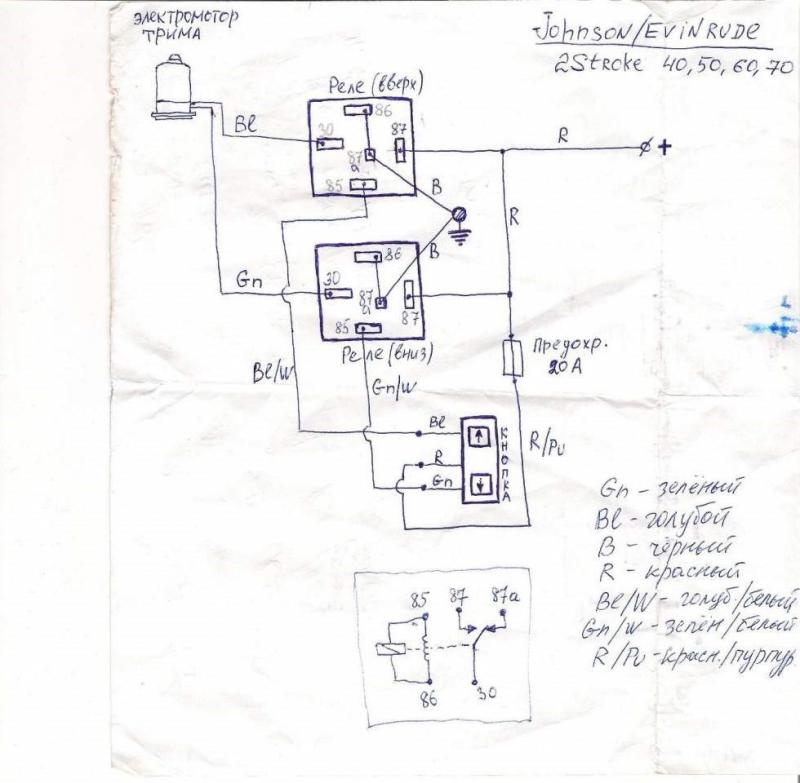 электромотор
трима
Johnson/EVINRUDE
2Stroke 40, 50, 60, 70
Реле (вверх)
86
30
87
87a
85
Bl
R
+
B
R
B
Gn
86
30
87a
87
85
Реле (вниз)
Bl/W
Gn/W
Предохр.
20A
R/Pu
Bl
R
Gn
КНОПКА
Gn - зелёный
Bl - голубой
B - чёрный
R - красный
Bl/W - голуб/белый
Gn/w - зелён/белый
R/Pu - красн./пурпур
85
87
87a
86
30